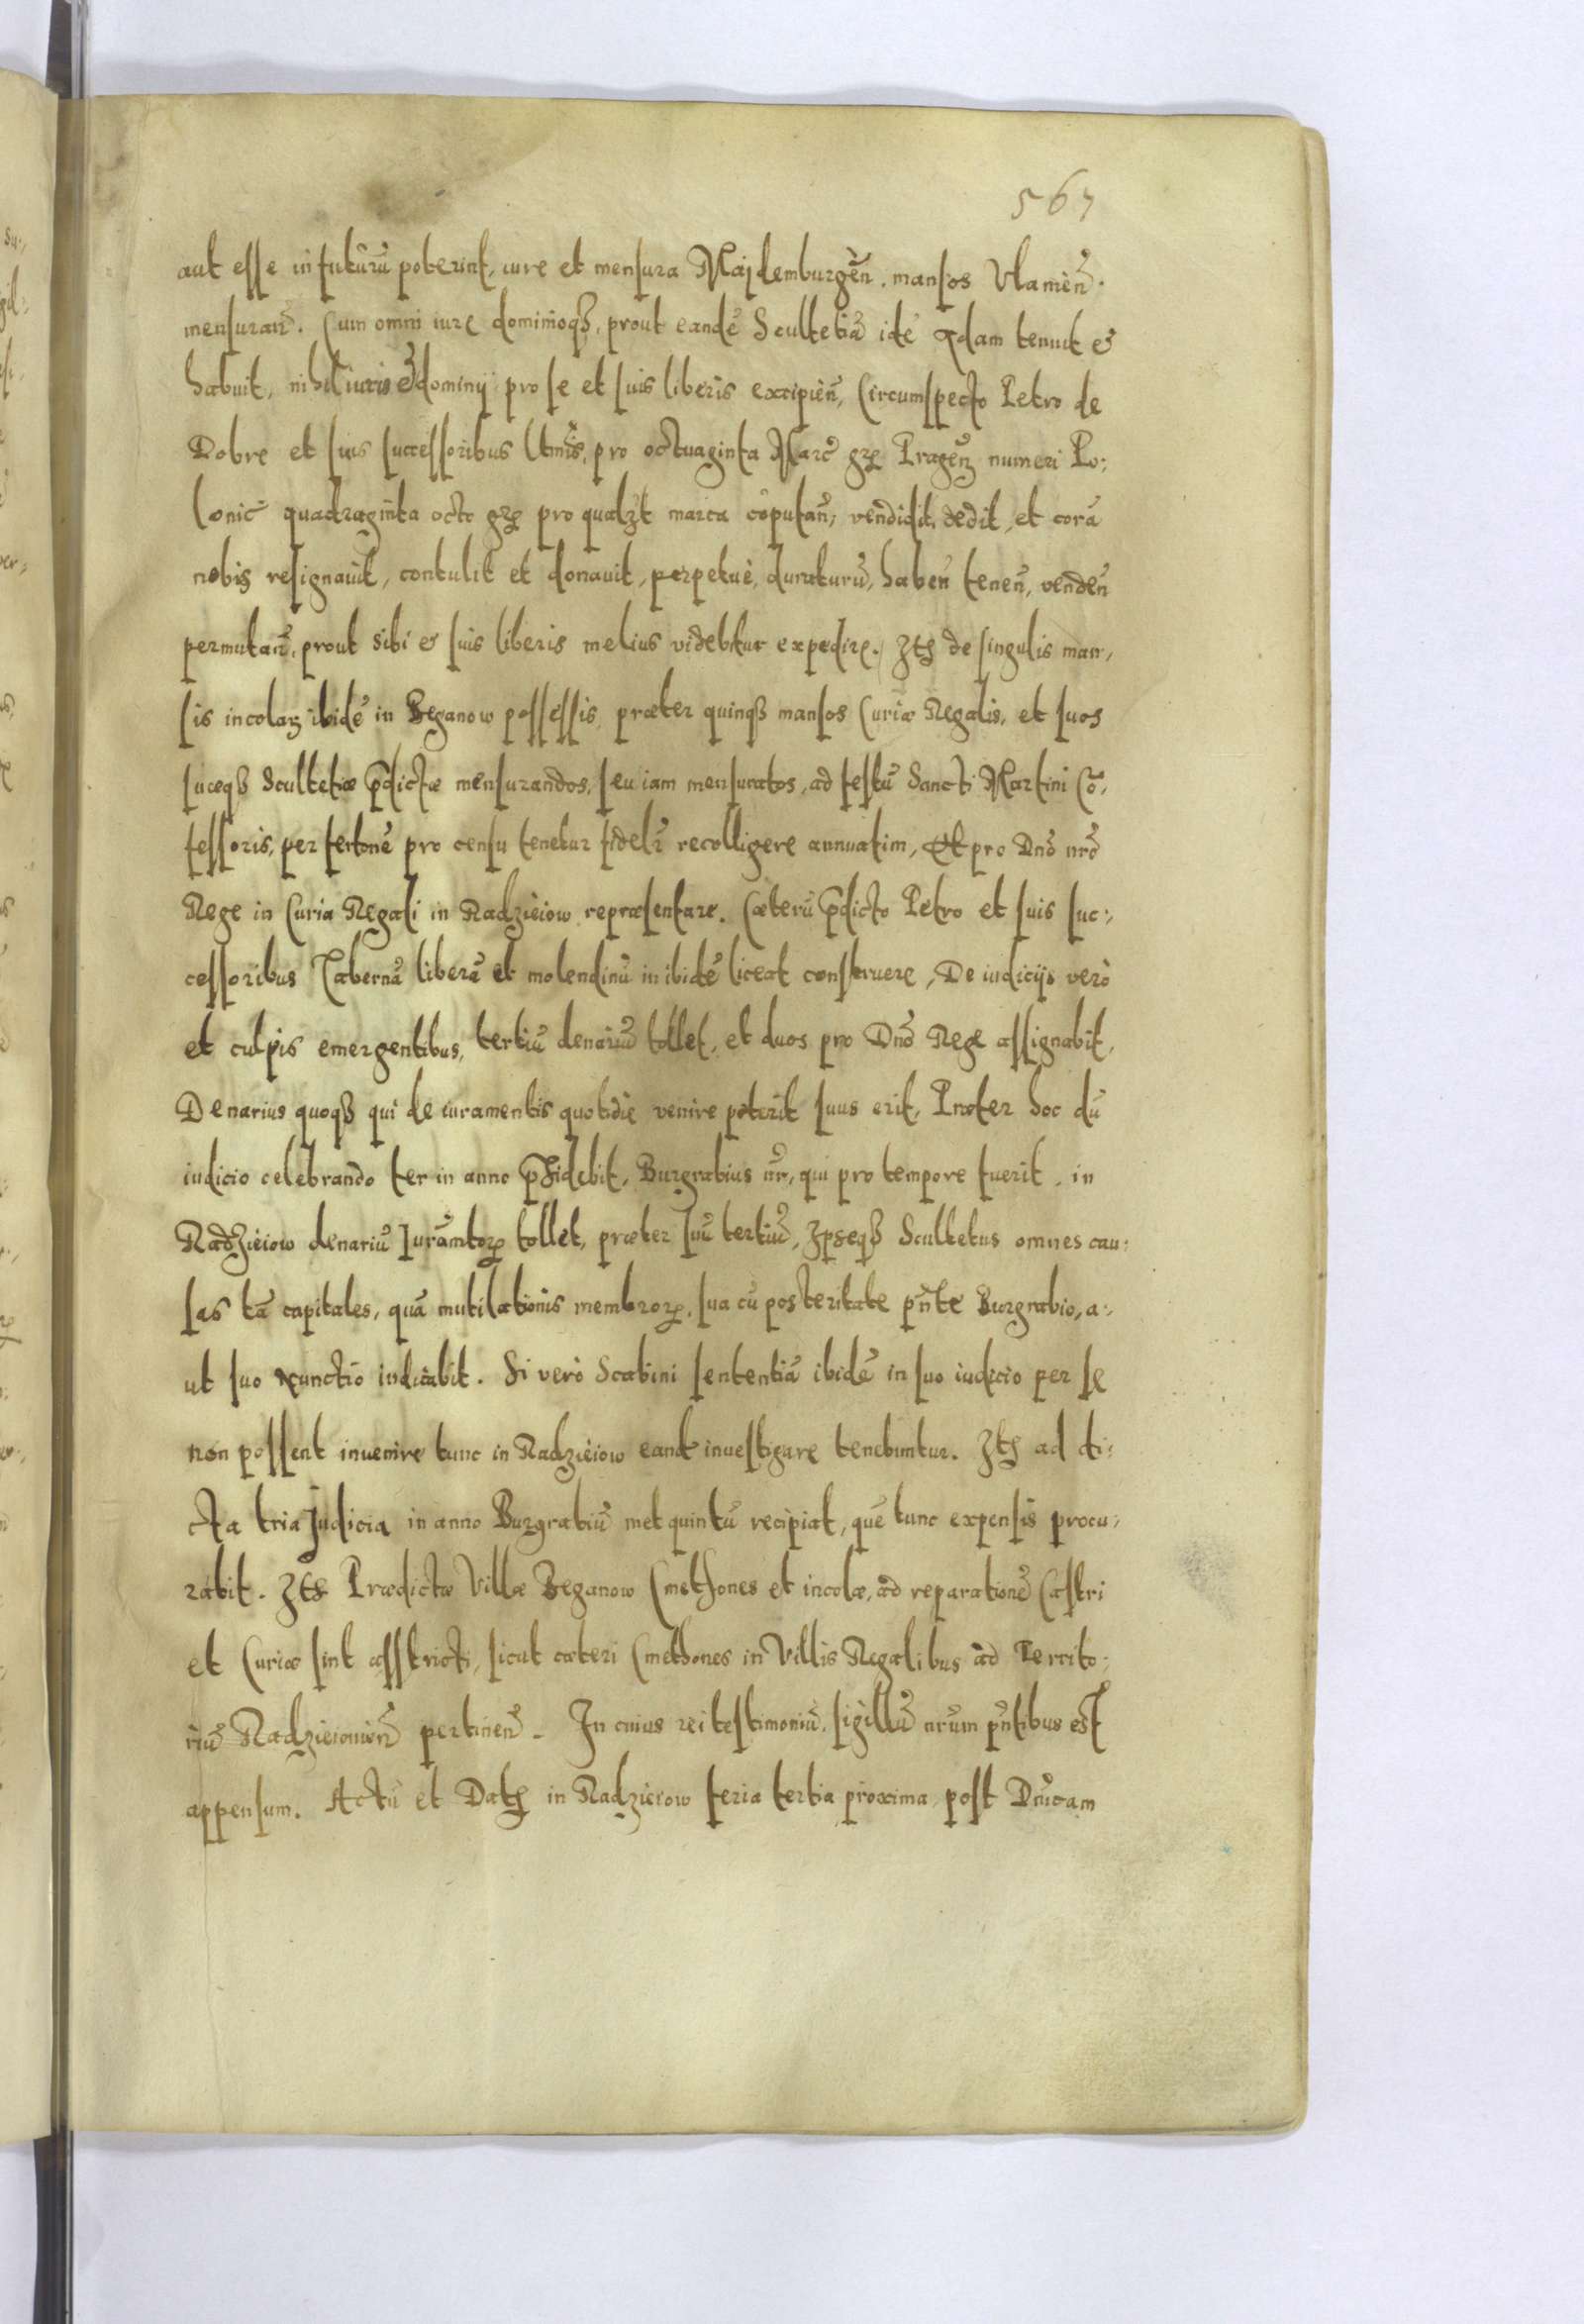 567
aut esse in futurũ poterint, iure et mensura Maijdemburgeñ. mansos Vlameñ.
mensurañ. Cum omni iure dominioqȝ, prout eandẽ Scultetiã idẽ Adam tenuit &
habuit, nihil iuris & dominij pro se et suis liberis excipieñ, Circumspecto Petro de
Dobre et suis successoribus ltmis, pro octuaginta Marc̃ grꝝ Prageñ numeri Po-
lonic̃ quadraginta octo grꝝ pro qualȝt marca cõputañ, vendidit, dedit, et corã
nobis resignauit, contulit et donauit, perpetuè, duraturũ, habeñ teneñ, vendeñ
permutañ, prout sibi & suis liberis melius videbitur expedire. Itẽ de singulis man,
sis incolaꝝ ibidẽ in Beganow possessis, præter quinqȝ mansos Curiæ Regalis, et suos
suæqȝ Scultetiæ p̃dictæ mensurandos, seu iam mensuratos, ad festũ Sancti Martini Cõ-
fessoris, per fertonẽ pro censu tenetur fidelr̃ recolligere annuatim, Et pro Dnõ nrõ
Rege in Curia Regali in Radzieiow repræsentare. Cæterũ p̃dicto Petro et suis suc-
cessoribus Tabernã liberã et molendinũ inibidẽ liceat construere, De iudicijs verò
et culpis emergentibus, tertiũ denariũ tollet, et duos pro Dnõ Rege assignabit,
Denarius quoqȝ qui de iuramentis quotidiè venire poterit suus erit, Præter hoc dũ
iudicio celebrando ter in anno p̃sidebit, Burgrabius nr̃, qui pro tempore fuerit, in
Radzieiow denariũ Iurãmtoꝝ tollet, præter suũ tertiũ, Ipseqȝ Scultetus omnes cau-
sas tã capitales, quã mutilationis membroꝝ, sua cũ posteritate pñte Burgrabio, a-
ut suo Nunctio iudicabit. Si verò Scabini sententiã ibidẽ in suo iudicio per se
non possent inuenire tunc in Radzieiow eand̃ inuestigare tenebuntur. Itẽ ad di-
cta tria Iudicia in anno Burgrabiũ met quintũ recipiat, quẽ tunc expensis procu-
rabit. Itẽ Prædictæ Villæ Beganow Cmethones et incolæ, ad reparationẽ Castri
et Curiæ sint asstricti, sicut cæteri Cmethones in Villis Regalibus ad Territo-
riũ Radzieiowieñ pertineñ. In cuius rei testimoniũ, sigillũ nrũm pñtibus est
appensum. Actũ et Datẽ in Radzieiow feria tertia proxima post Dnicam